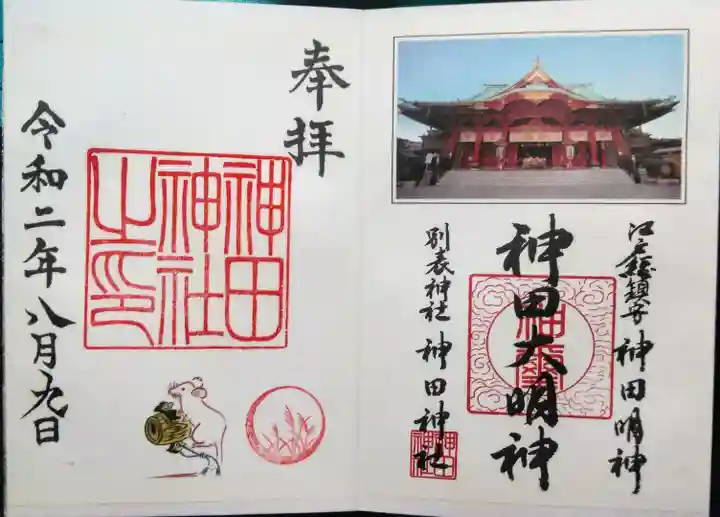 江戸総鎮守 神田明神
神田大明神
神璽
別表神社 神田神社
神田神社
奉拝
神田神社之印
令和二年八月九日